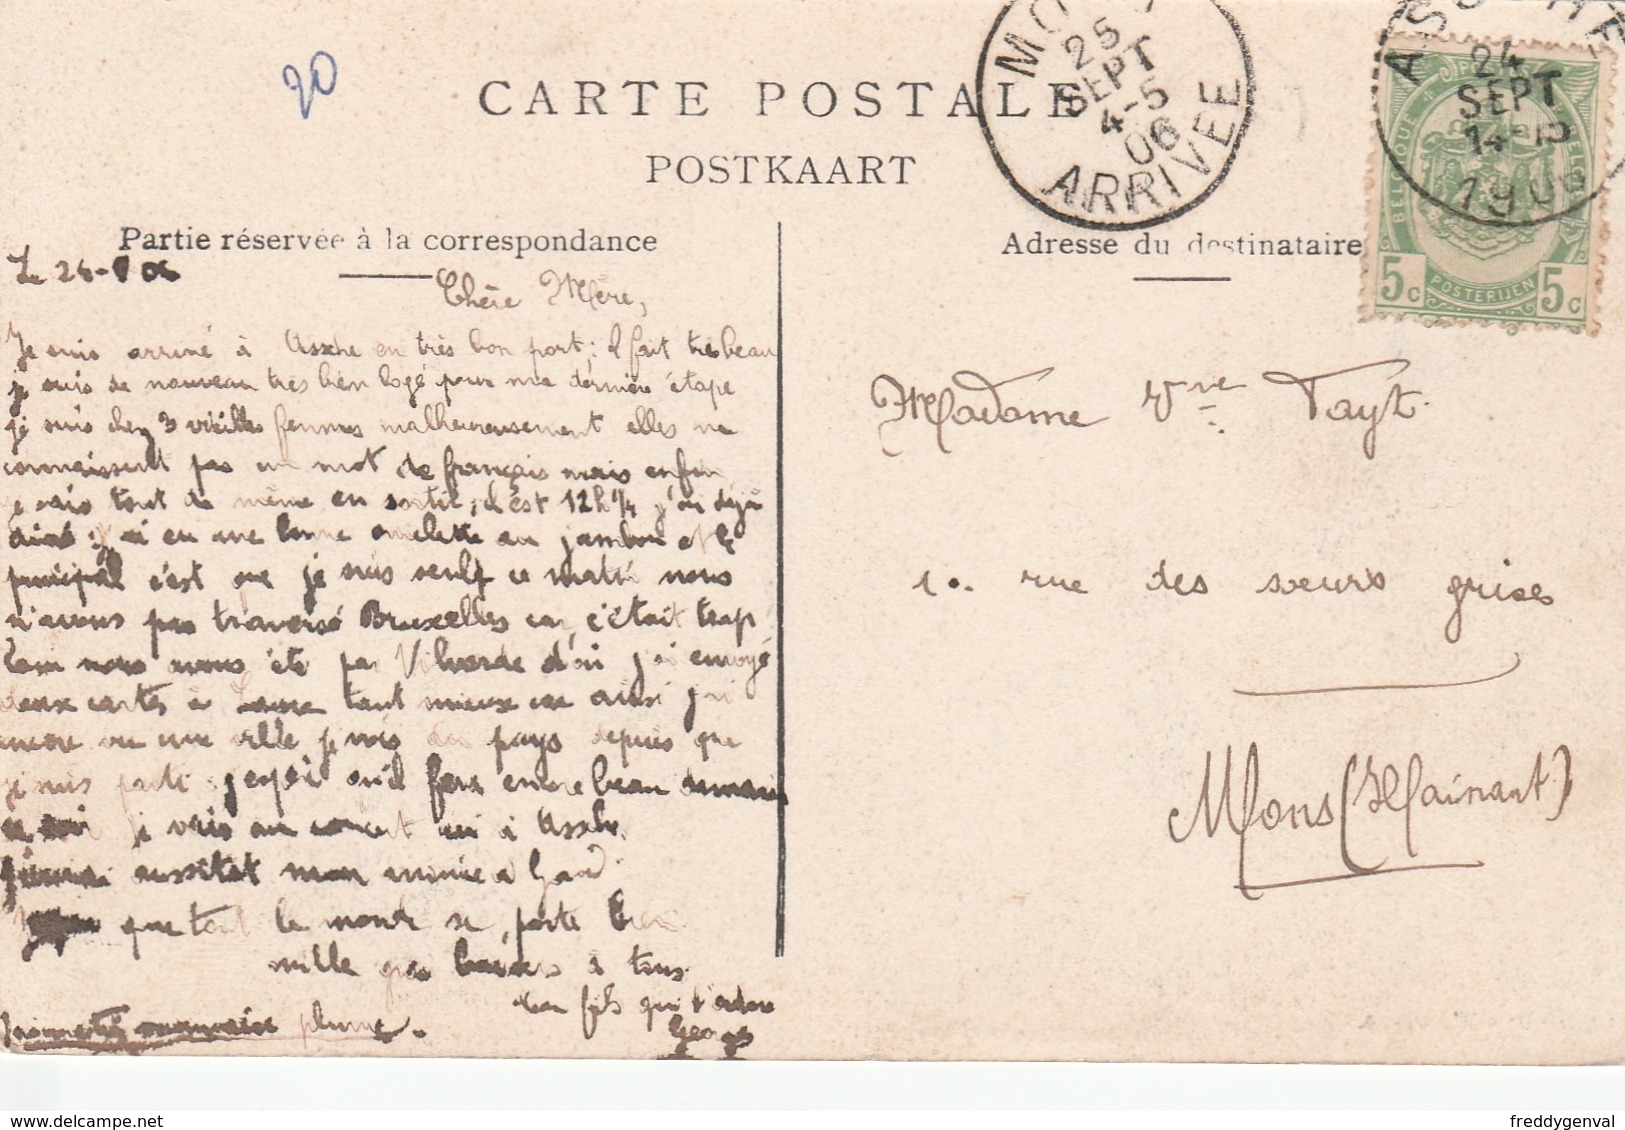 20
CARTE POSTALE
POSTKAART
MO
25
SEPT
4-5
06
ARRIVEE
ASSCHE
24
SEPT
14-15
1906
BELGIQUE
5c
POSTERIJEN
5c
Partie réservée à la correspondance
Adresse du destinataire
Le 24-9 06
Chère Mère,
Je suis arrivé à Assche en très bon port; il fait très beau
je suis de nouveau très bien logé pour ma dernière étape
je suis chez 3 vieilles femmes malheureusement elles ne
connaissent pas un mot de français mais enfin
je vais tout de même en sortir; il est 12h 1/4 j'ai déjà
diné j'ai eu une bonne omelette au jambon et le
principal c'est que je suis seul; ce matin nous
n'avons pas traversé Bruxelles car c'était trop
loin nous avons été par Vilvorde d'où j'ai envoyé
deux cartes à tant mieux car ainsi j'ai
encore vu une ville je vois du pays depuis que
je suis parti j'espère qu'il fera encore beau demain
ce soir je vais au concert ici à Assche
aussitôt mon arrivée à Gand
que tout le monde se porte bien
mille gros baisers à tous
ton fils qui t'adore
Georges
mauvaise plume.
Madame Vve Tayt.
10. rue des sœurs grises
Mons (Hainaut)
freddygenval